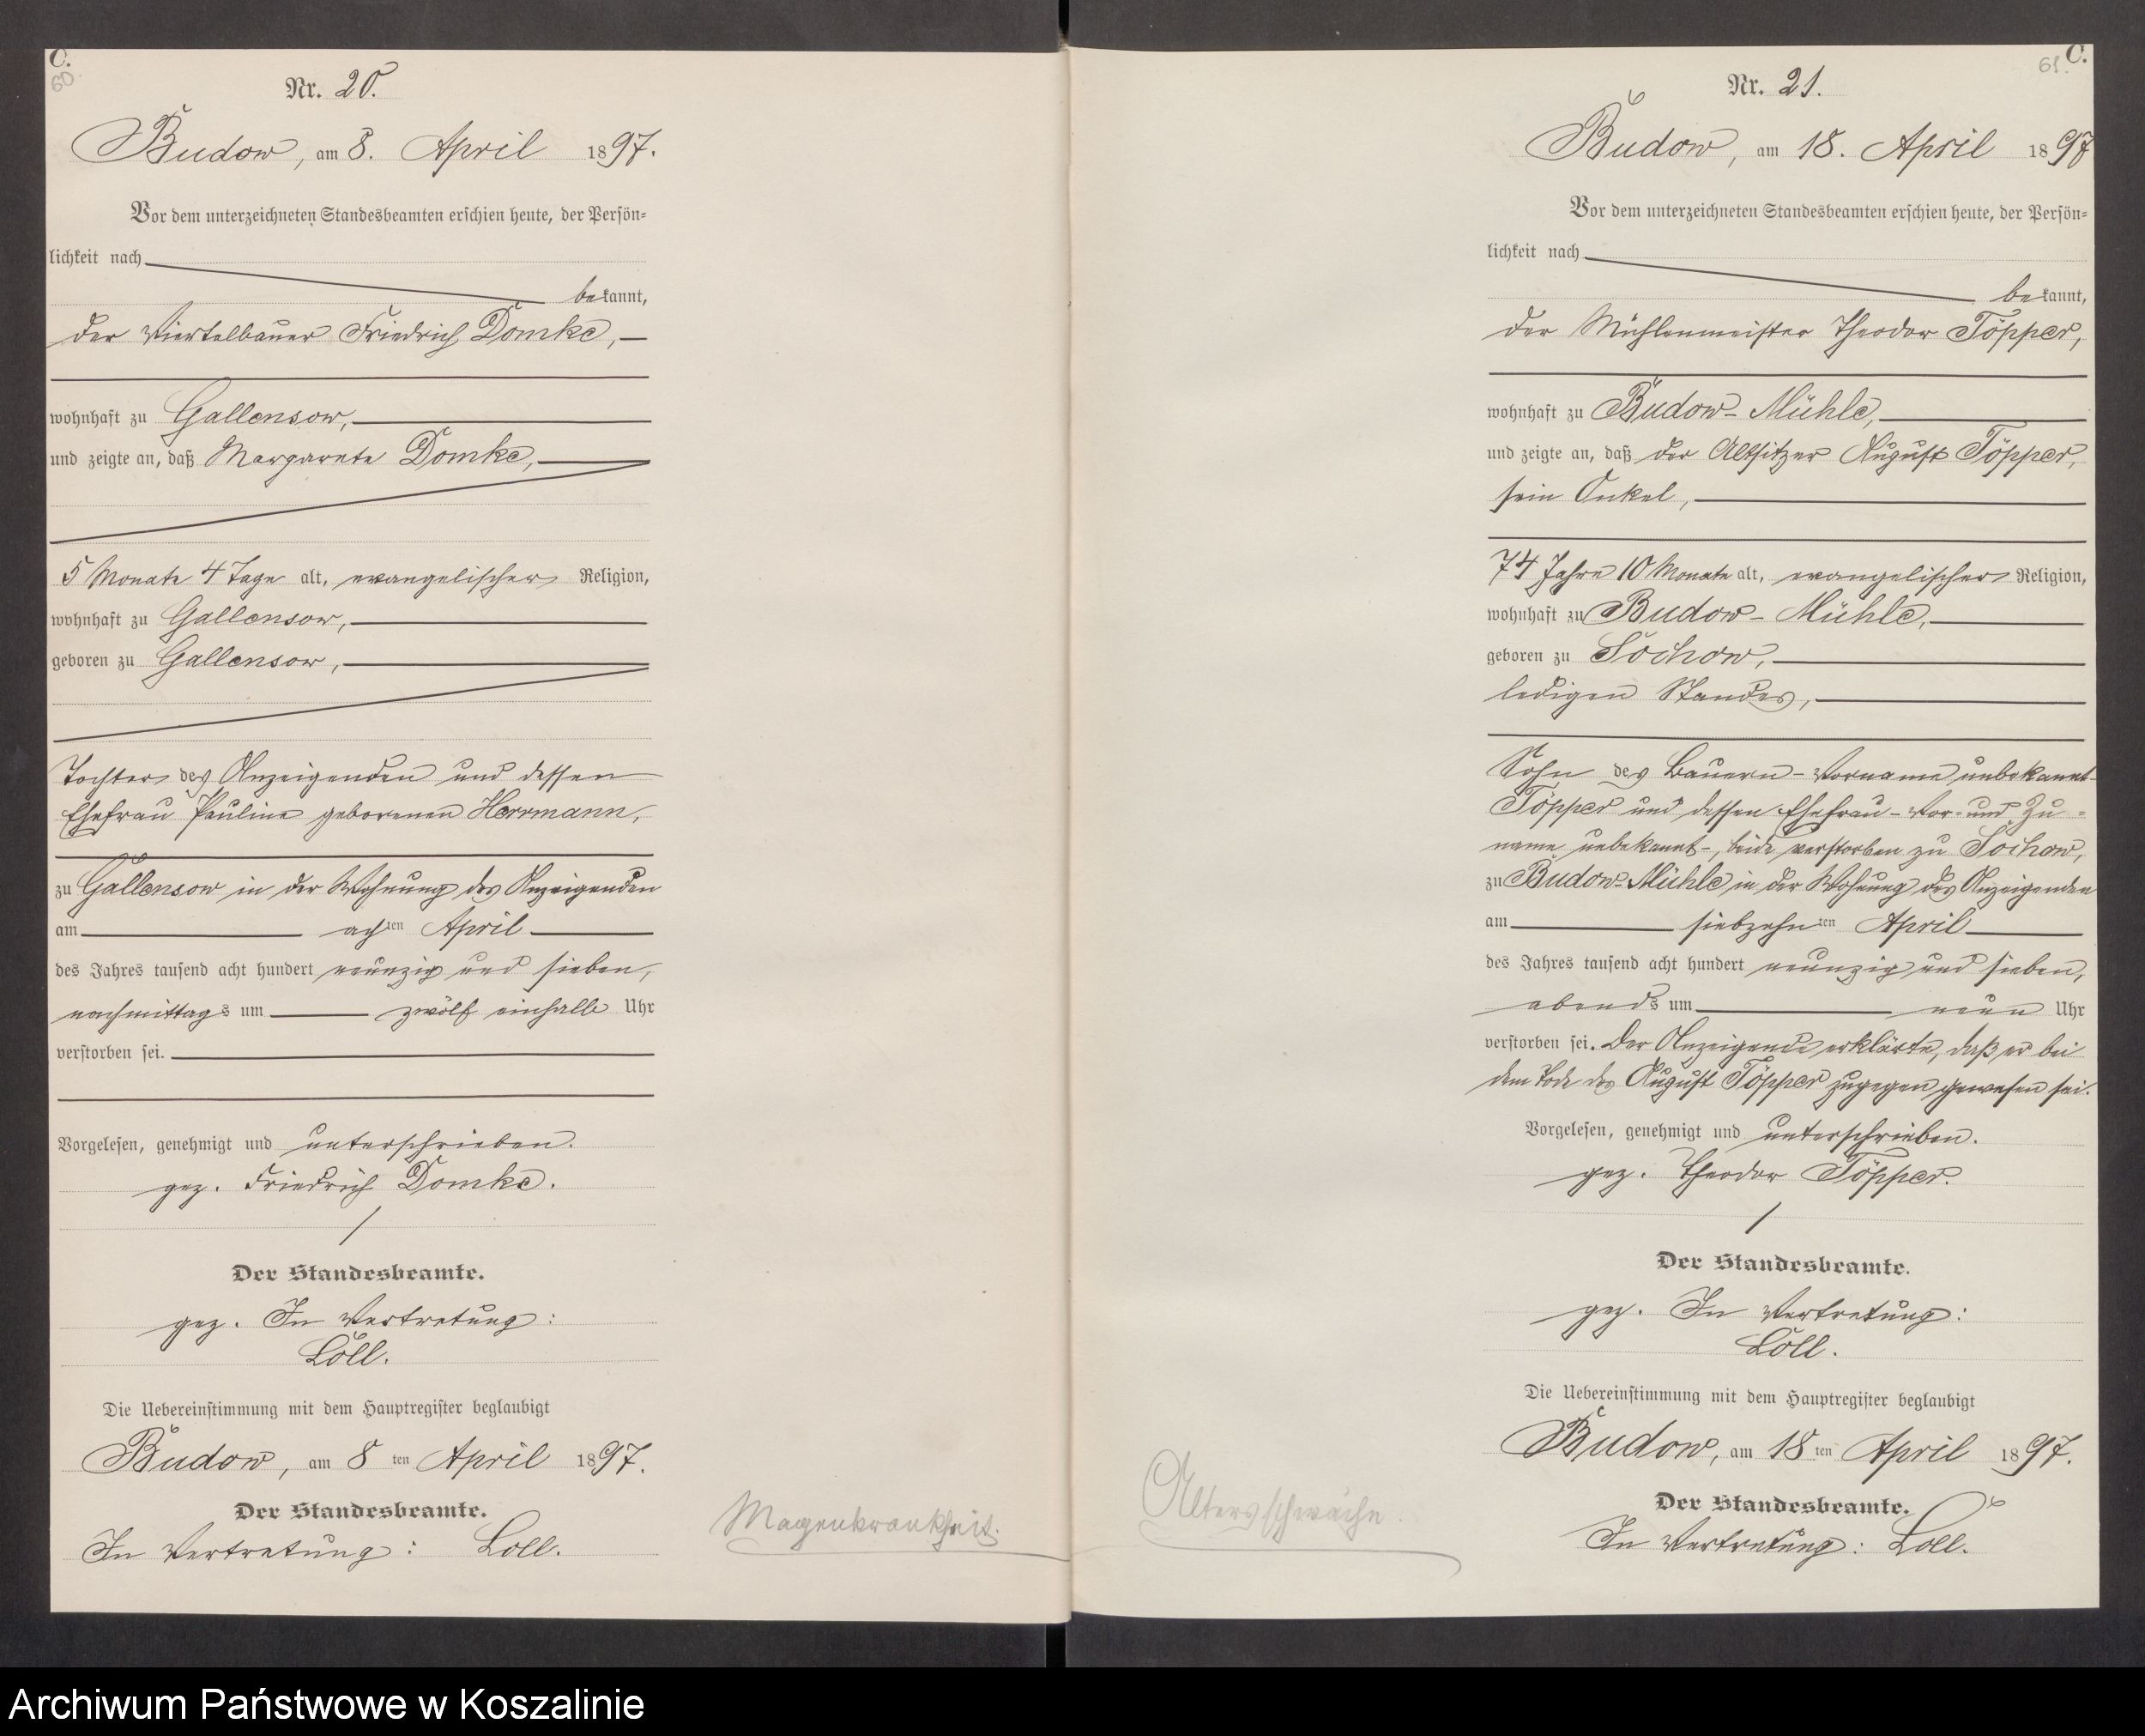 C.
60.
Nr. 20.
Budow, am 8. April 1897.
Vor dem unterzeichneten Standesbeamten erschien heute, der Persön-
lichkeit nach
bekannt,
der Viertelbauer Friedrich Domke,
wohnhaft zu Gallensow,
und zeigte an, daß Margarete Domke,
5 Monate 4 Tage alt, evangelischer Religion,
wohnhaft zu Gallensow,
geboren zu Gallensow,
Tochter des Anzeigenden und dessen
Ehefrau Pauline geborenen Herrmann,
zu Gallensow in der Wohnung des Anzeigenden
am achten April
des Jahres tausend acht hundert neunzig und sieben,
nachmittags um zwölf einhalb Uhr
verstorben sei.
Vorgelesen, genehmigt und unterschrieben.
gez. Friedrich Domke.
Der Standesbeamte.
gez. In Vertretung:
Löll.
Die Uebereinstimmung mit dem Hauptregister beglaubigt
Budow, am 8ten April 1897.
Der Standesbeamte.
In Vertretung: Löll.
Magenkrankheit.
C.
61.
Nr. 21.
Budow, am 18. April 1897
Vor dem unterzeichneten Standesbeamten erschien heute, der Persön-
lichkeit nach
bekannt,
der Mühlenmeister Theodor Töpper,
wohnhaft zu Budow-Mühle,
und zeigte an, daß der Altsitzer August Töpper,
sein Onkel,
74 Jahre 10 Monate alt, evangelischer Religion,
wohnhaft zu Budow-Mühle,
geboren zu Sochow,
ledigen Standes,
Sohn des Bauern - Vorname unbekannt -
Töpper und dessen Ehefrau - Vor- und Zu-
name unbekannt -, beide verstorben zu Sochow,
zu Budow-Mühle in der Wohnung des Anzeigenden
am siebzehnten April
des Jahres tausend acht hundert neunzig und sieben,
abends um neun Uhr
verstorben sei. Der Anzeigende erklärte, daß er bei
dem Tode des August Töpper zugegen gewesen sei.
Vorgelesen, genehmigt und unterschrieben.
gez. Theodor Töpper.
Der Standesbeamte.
gez. In Vertretung:
Löll.
Die Uebereinstimmung mit dem Hauptregister beglaubigt
Budow, am 18ten April 1897.
Der Standesbeamte.
In Vertretung: Löll.
Altersschwäche.
Archiwum Państwowe w Koszalinie